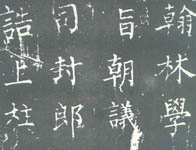 翰林學
旨朝議
司封郎
誥上柱